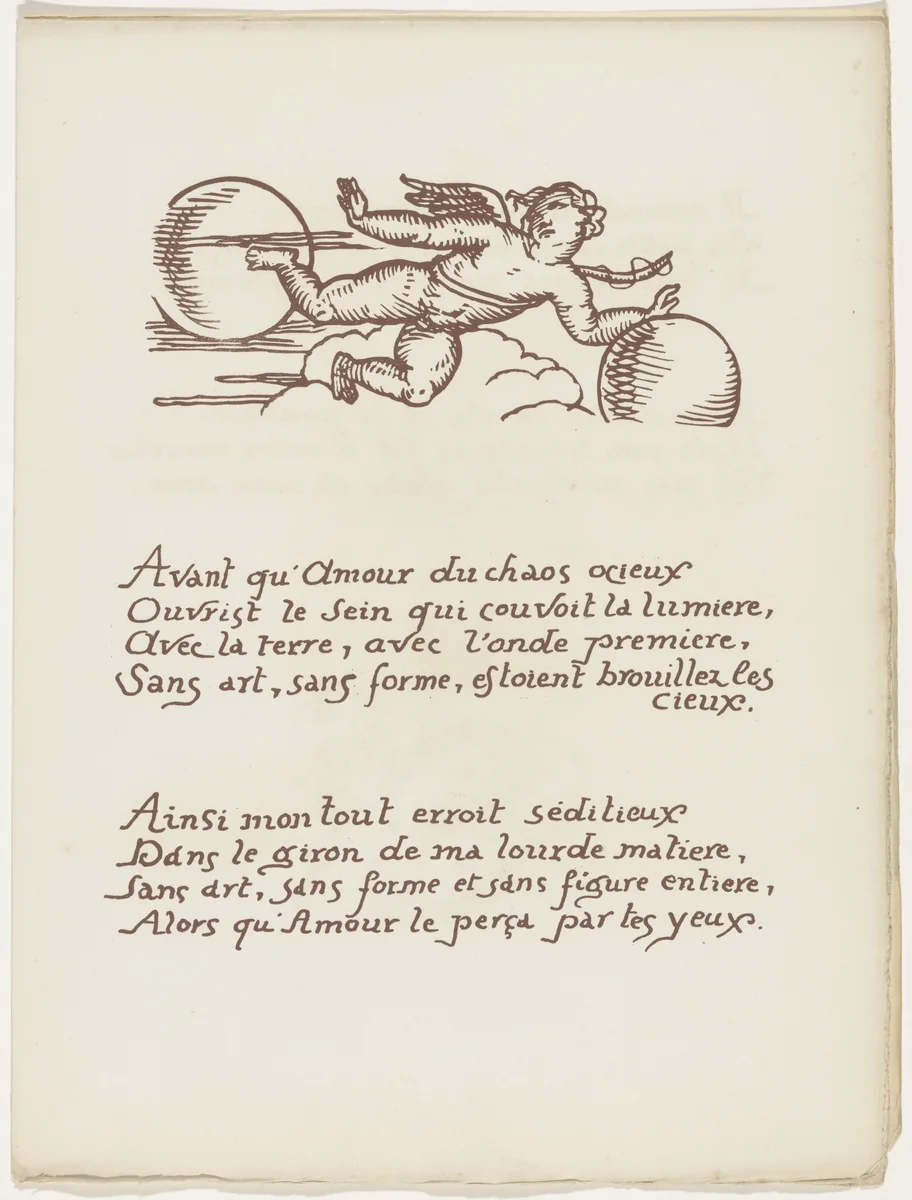 Avant qu'Amour du chaos ocieux
Ouvrist le sein qui couvoit la lumiere,
Avec la terre, avec l'onde premiere,
Sans art, sans forme, estoient brouillez les
cieux.
Ainsi mon tout erroit séditieux
Dans le giron de ma lourde matiere,
Sans art, sans forme et sans figure entiere,
Alors qu'Amour le perça par tes yeux.